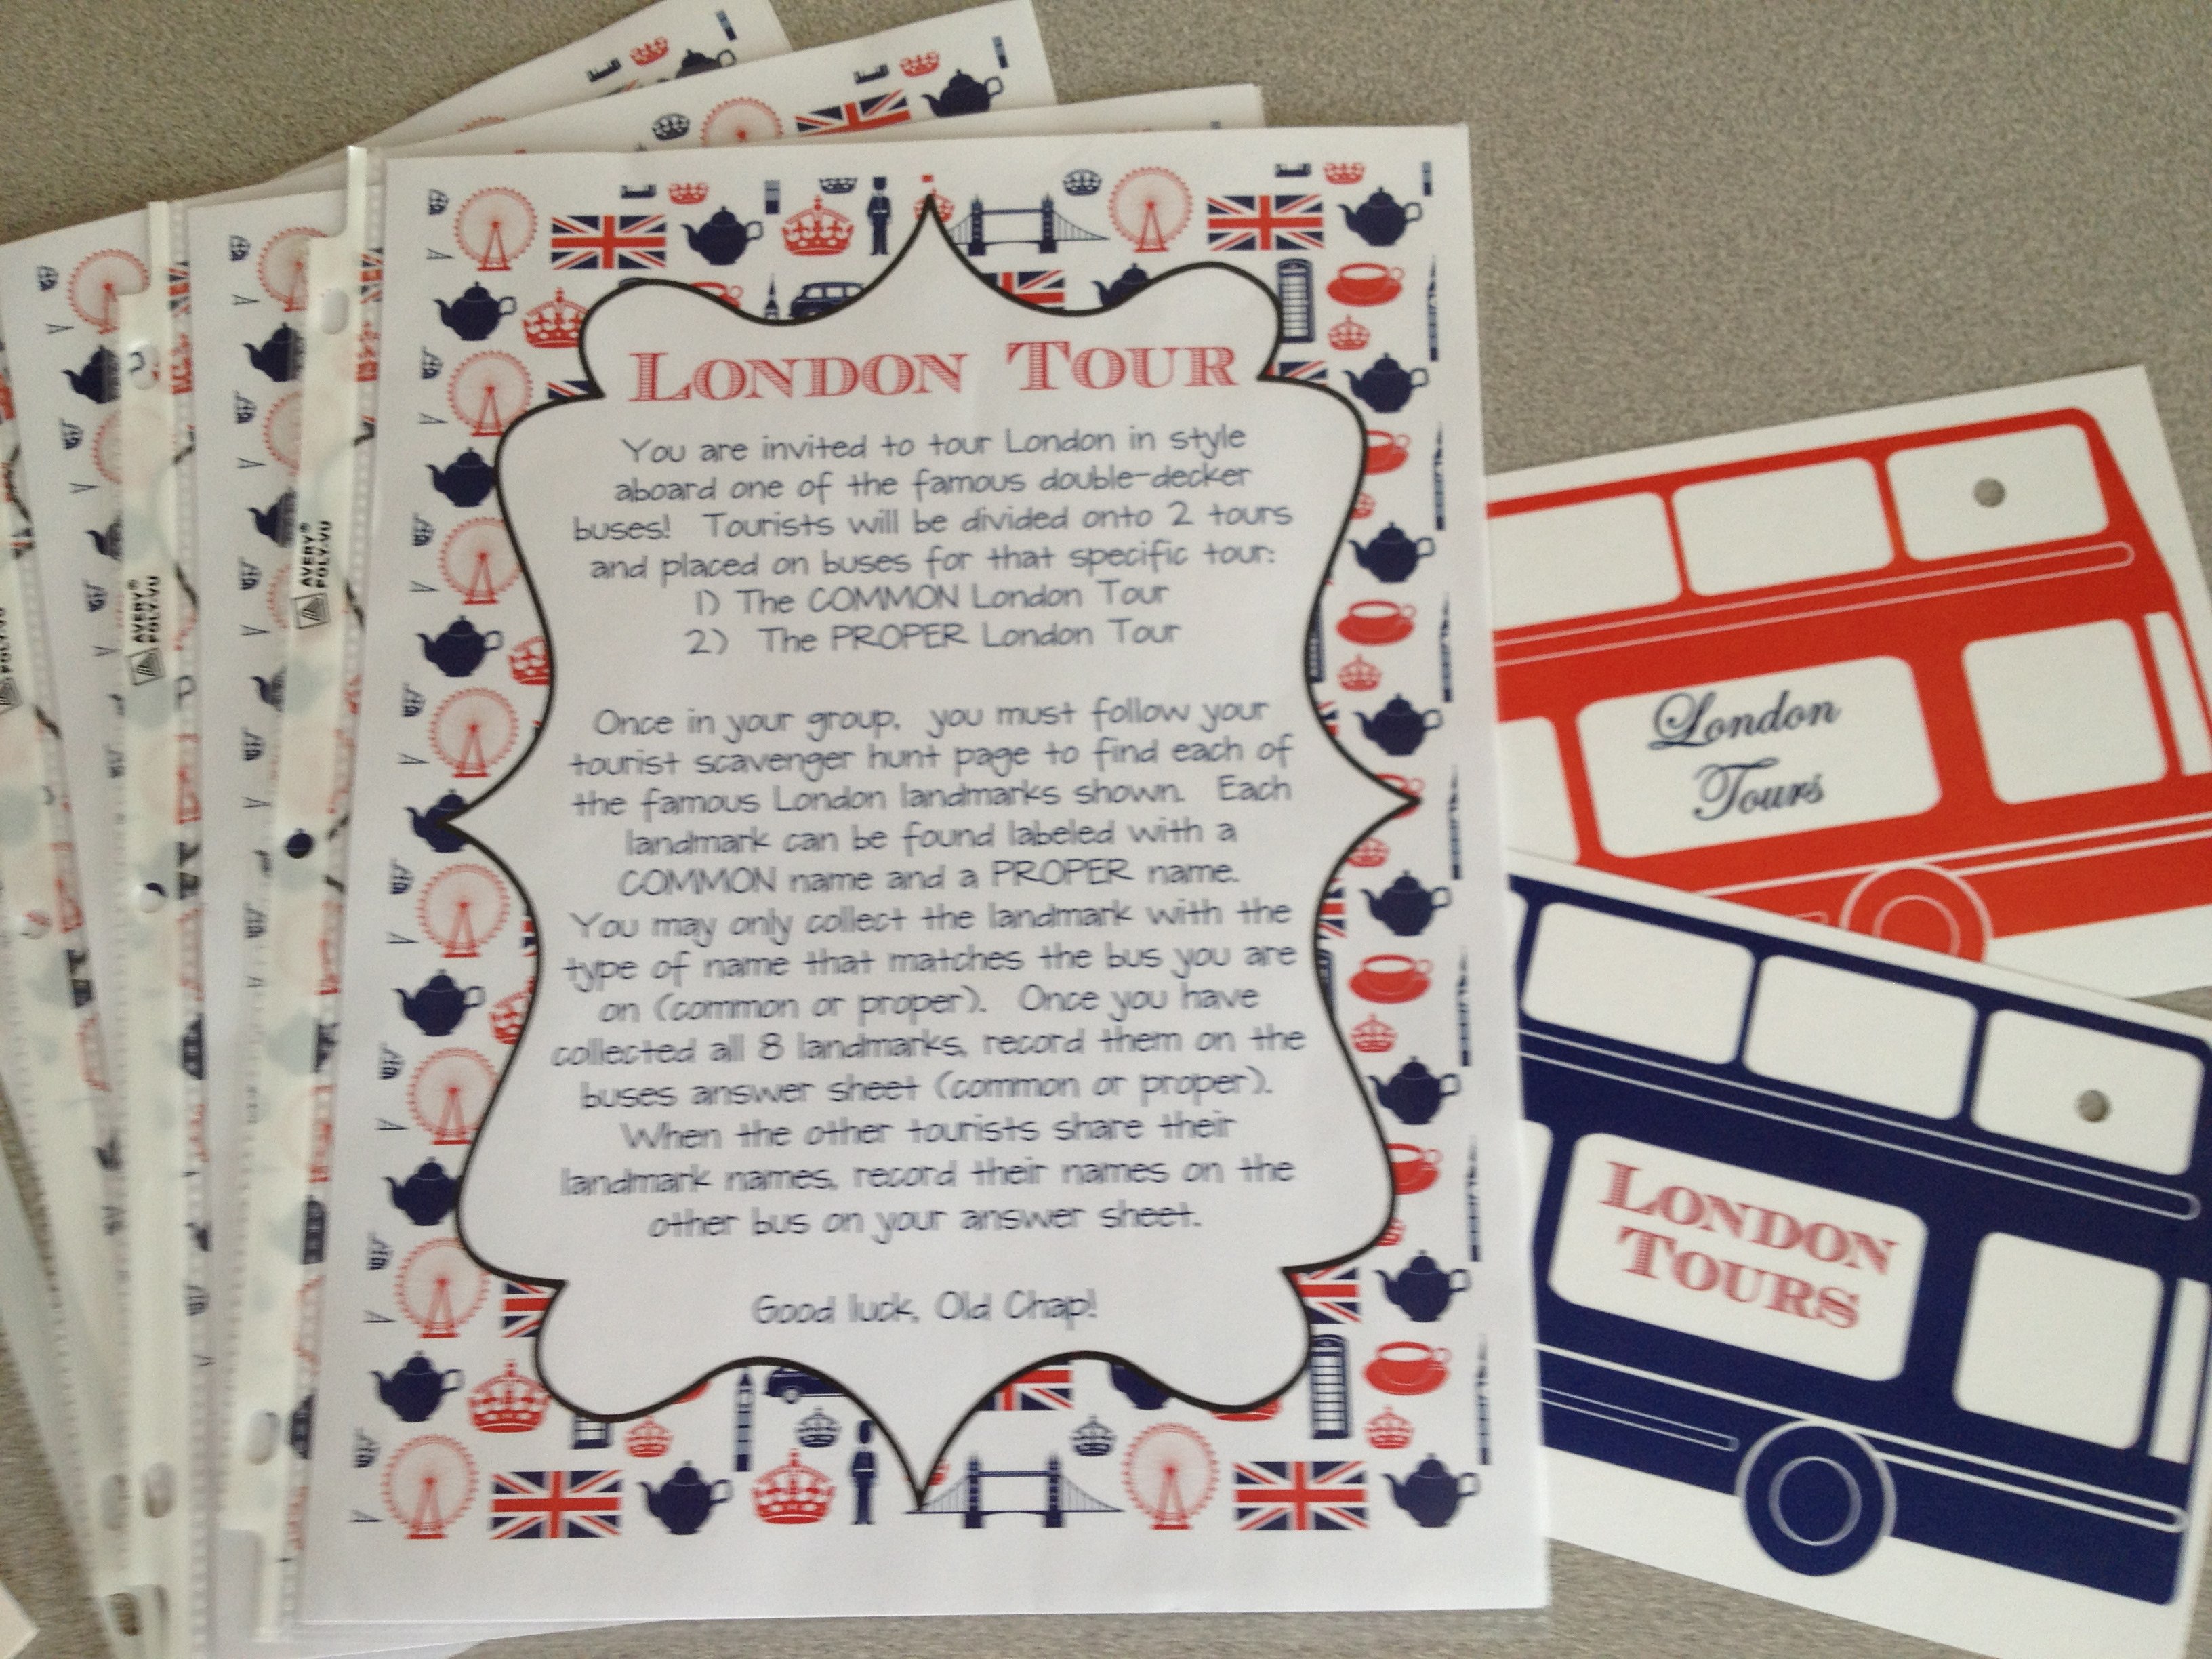 LONDON TOUR
You are invited to tour London in style
aboard one of the famous double-decker
buses! Tourists will be divided onto 2 tours
and placed on buses for that specific tour:
1) The COMMON London Tour
2) The PROPER London Tour
Once in your group, you must follow your
tourist scavenger hunt page to find each of
the famous London landmarks shown. Each
landmark can be found labeled with a
COMMON name and a PROPER name.
You may only collect the landmark with the
type of name that matches the bus you are
on (common or proper). Once you have
collected all 8 landmarks, record them on the
buses answer sheet (common or proper).
When the other tourists share their
landmark names, record their names on the
other bus on your answer sheet.
Good luck, Old Chap!
London
Tours
LONDON
TOURS
AVERY®
POLY-VU
AVERY®
POLY-VU